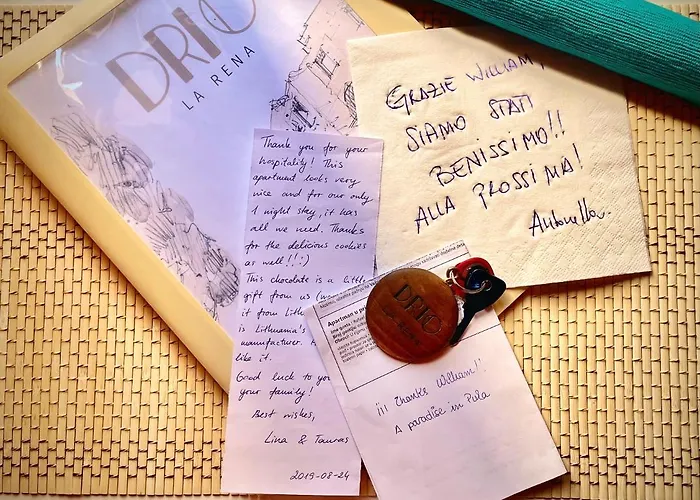 DRIO
LA RENA
GRAZIE WILLIAM,
SIAMO STATI
BENISSIMO!!
ALLA PROSSIMA!
Antonella.
Thank you for your
hospitality! This
apartment looks very
nice and for our only
1 night stay, it has
all we need. Thanks
for the delicious cookies
as well!! :)
This chocolate is a little
gift from us (we
it from Lith
is Lithuania's
manufacturer.
like it.
Good luck to you
your family!
Best wishes,
Lina & Tauras
2019-08-24
DRIO
Apartman u p
¡¡¡ Thanks William!!
A paradise in Pula